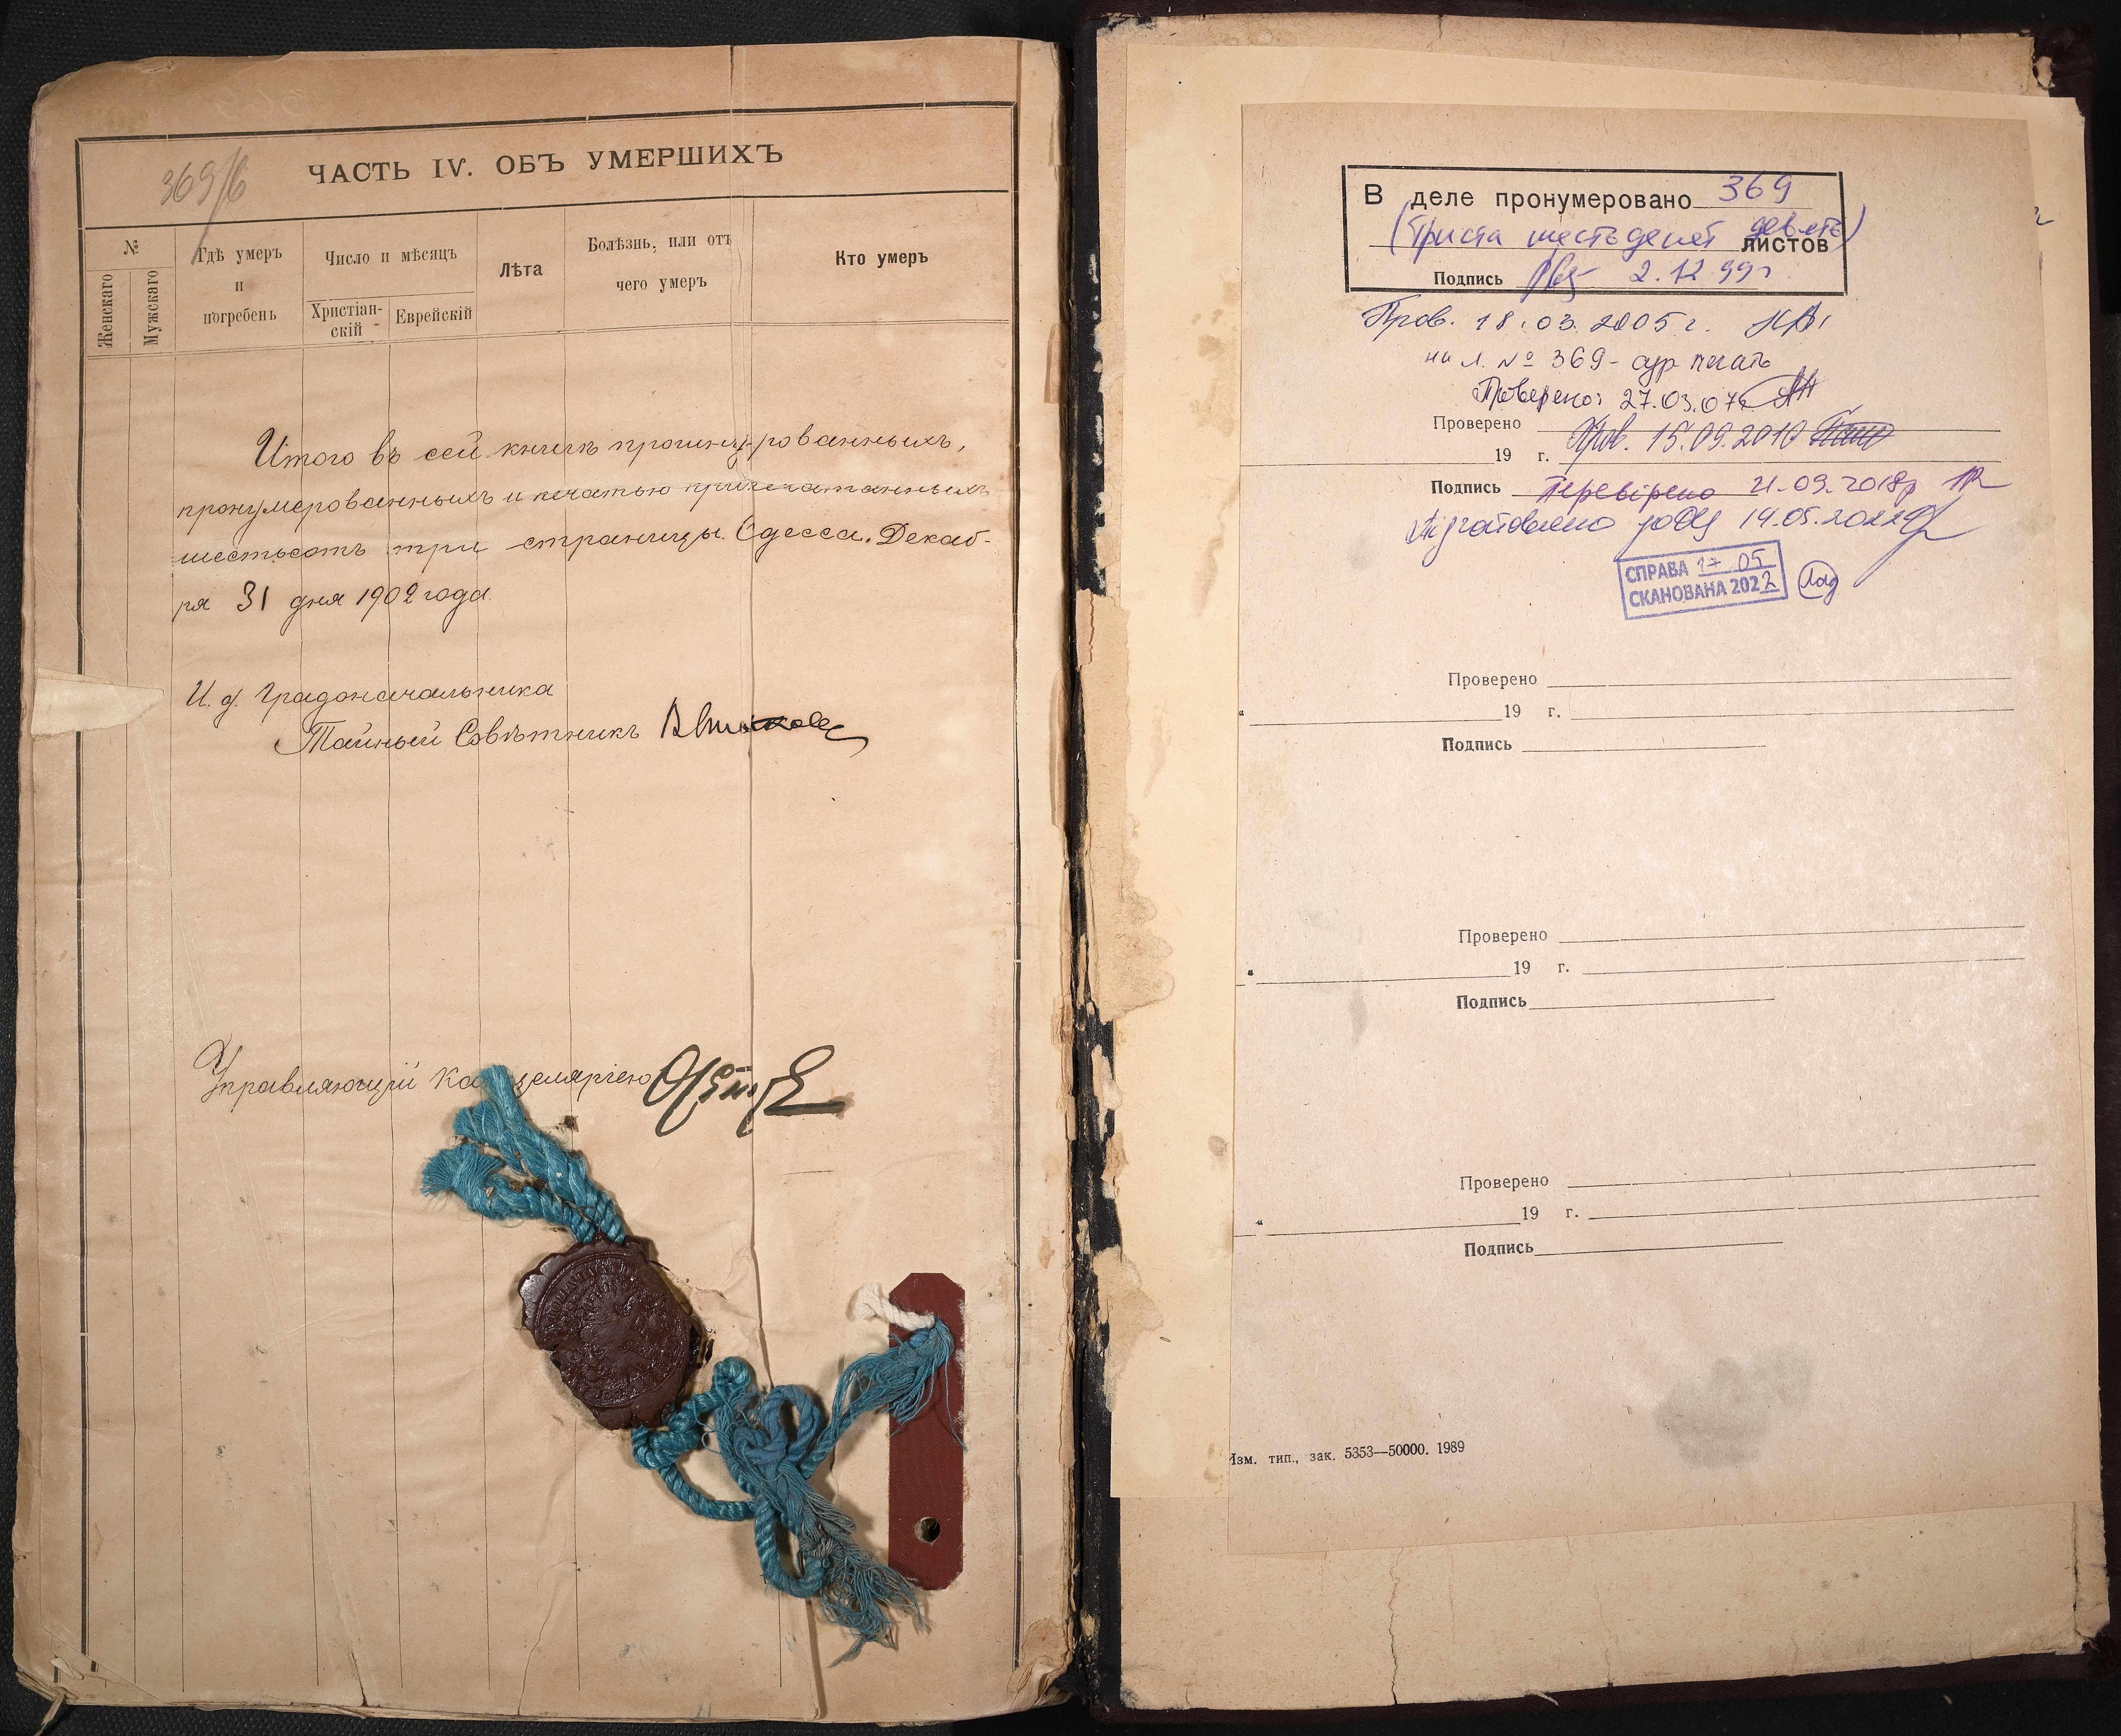 369/б
ЧАСТЬ IV. ОБЪ УМЕРШИХЪ
№
Женскаго
Мужскаго
Гдѣ умеръ
и
погребенъ
Число и мѣсяцъ
Христіан-
скій
Еврейскій
Лѣта
Болѣзнь, или отъ
чего умеръ
Кто умеръ
Итого въ сей книгѣ прошнурованныхъ,
пронумерованныхъ и печатью припечатанныхъ
шестьсотъ три страницы. Одесса. Декаб-
ря 31 дня 1902 года.
И. д. Градоначальника
Тайный Совѣтникъ
Управляющій Канцеляріею
В деле пронумеровано 369
(триста шестьдесят девять)
листов
Подпись 2.12.99г
Пров. 18.03.2005 г.
на л. № 369 - сур. печать
Проверено: 27.03.07г.
Проверено
Пров. 15.09.2010
19 г.
Подпись Перевірено 21.09.2018р
Підготовлено до ОЦ 14.05.2022р
СПРАВА 17 05
СКАНОВАНА 2022
Проверено
19 г.
Подпись
Проверено
19 г.
Подпись
Проверено
19 г.
Подпись
Изм. тип., зак. 5353—50000. 1989